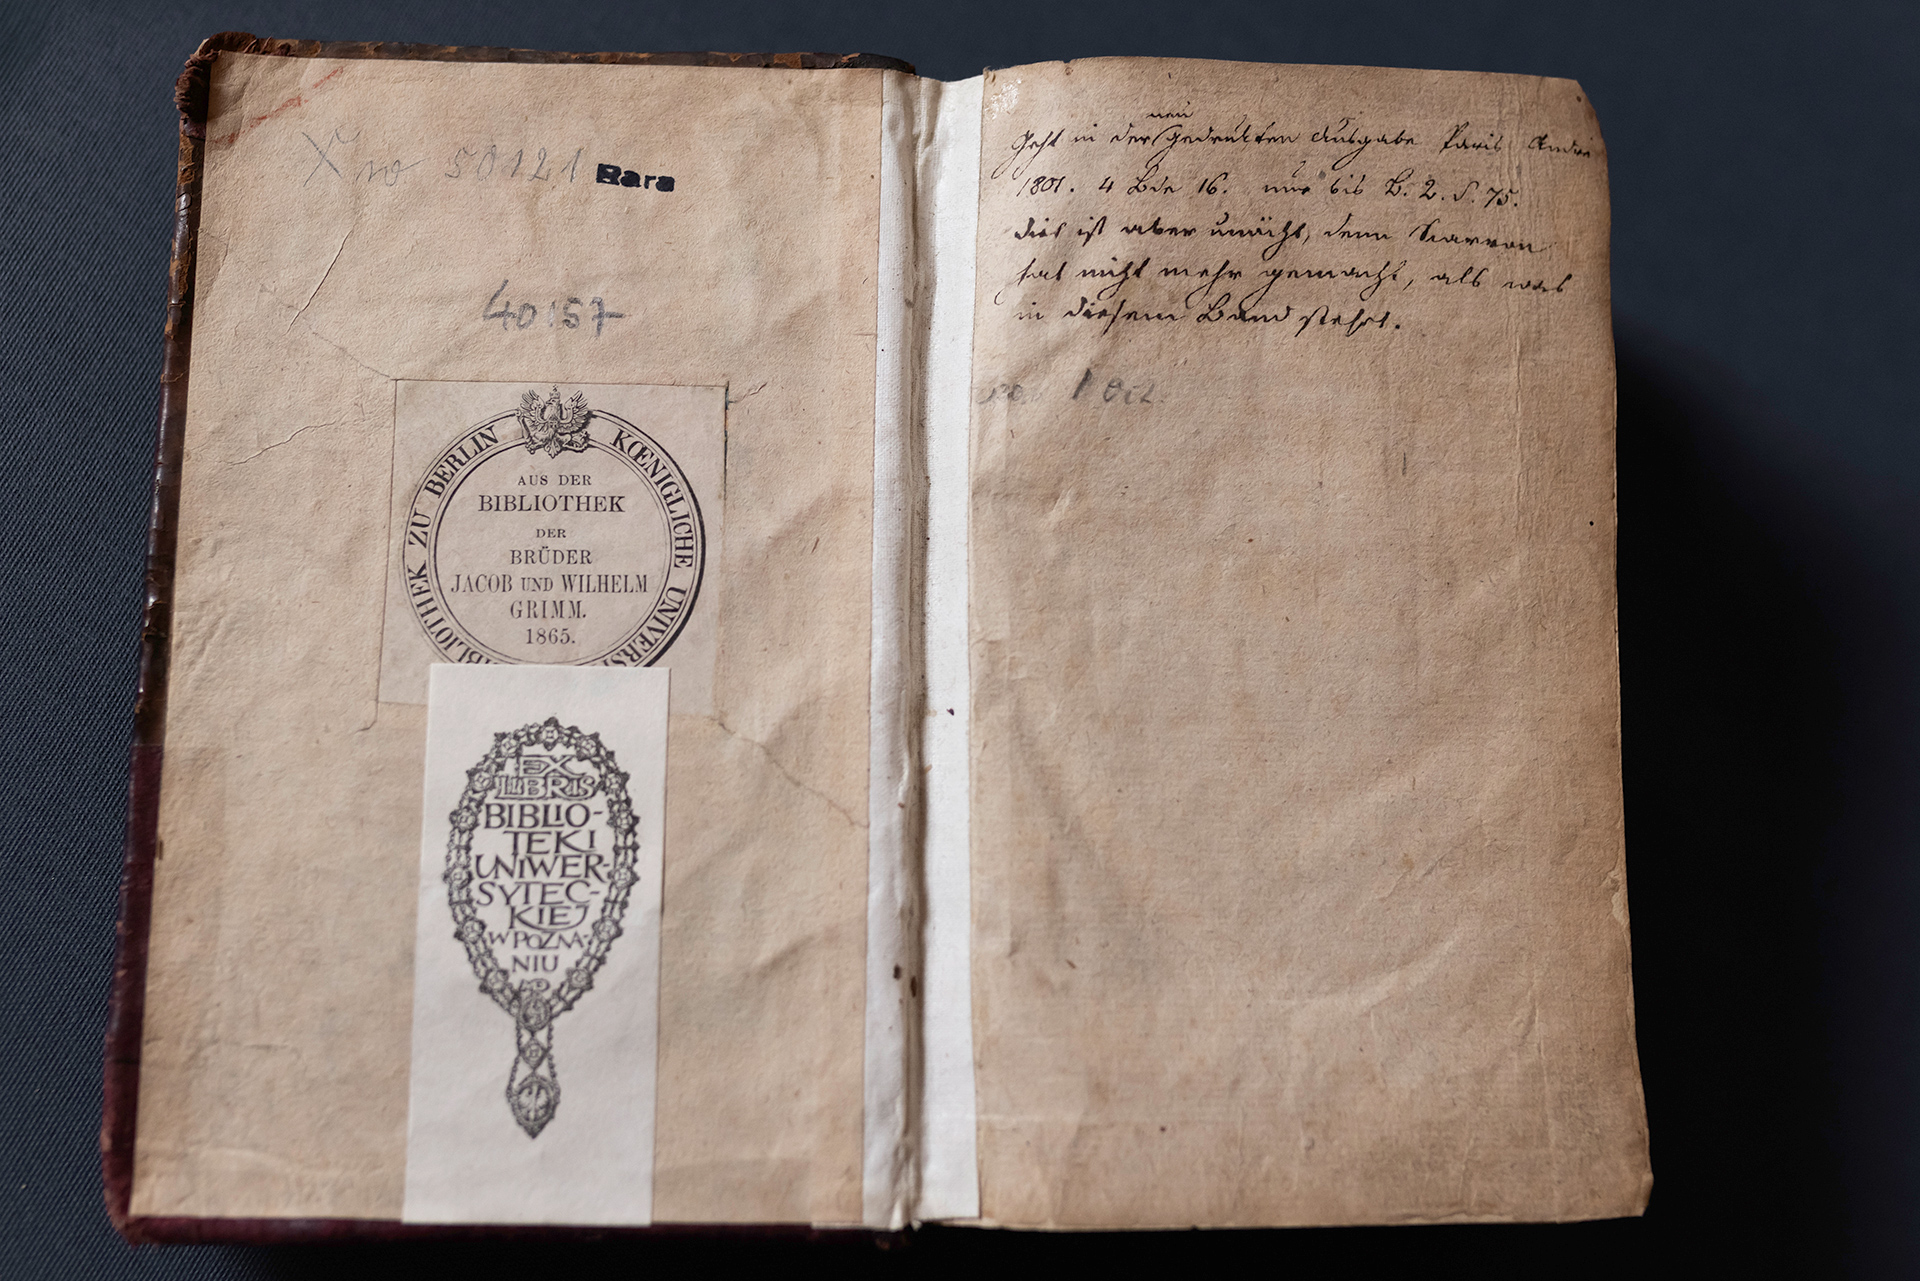 50121 Rara
40157
KŒNIGLICHE UNIVERS
BIBLIOTHEK ZU BERLIN
AUS DER
BIBLIOTHEK
DER
BRÜDER
JACOB UND WILHELM
GRIMM.
1865.
EX
LIBRIS
BIBLIO-
TEKI
UNIWER-
SYTEC-
KIEJ
W POZNA-
NIU
neu
Geht in der gedrukten Ausgabe Paris André
1801. 4 Bde 16. nur bis B. 2. S. 75.
dies ist aber unächt, denn Scarron
hat nicht mehr gemacht, als was
in diesem Band steht.